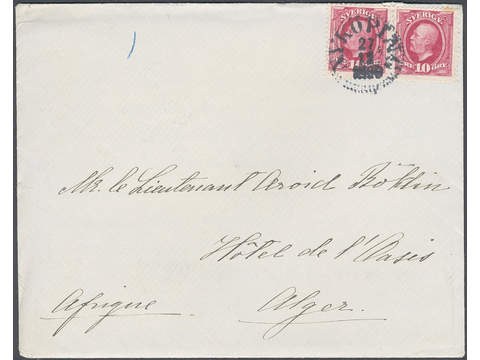 SVERIGE SVERIGE
10 ÖRE
NYKÖPING
27
11
Mr. le Lieutenant Arvid Böklin
Hôtel de l'Oasis
Afrique. Alger.